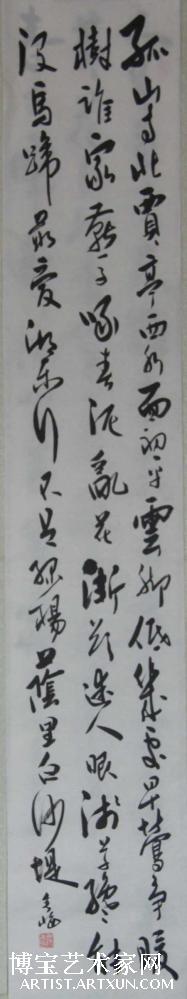 孤山寺北賈亭西水面初平雲脚低幾處早鶯争暖
樹誰家燕子啄春泥亂花漸欲迷人眼淺草纔能
没馬蹄最愛湖東行不足綠楊蔭里白沙堤
博宝艺术家网
ARTIST.ARTXUN.COM